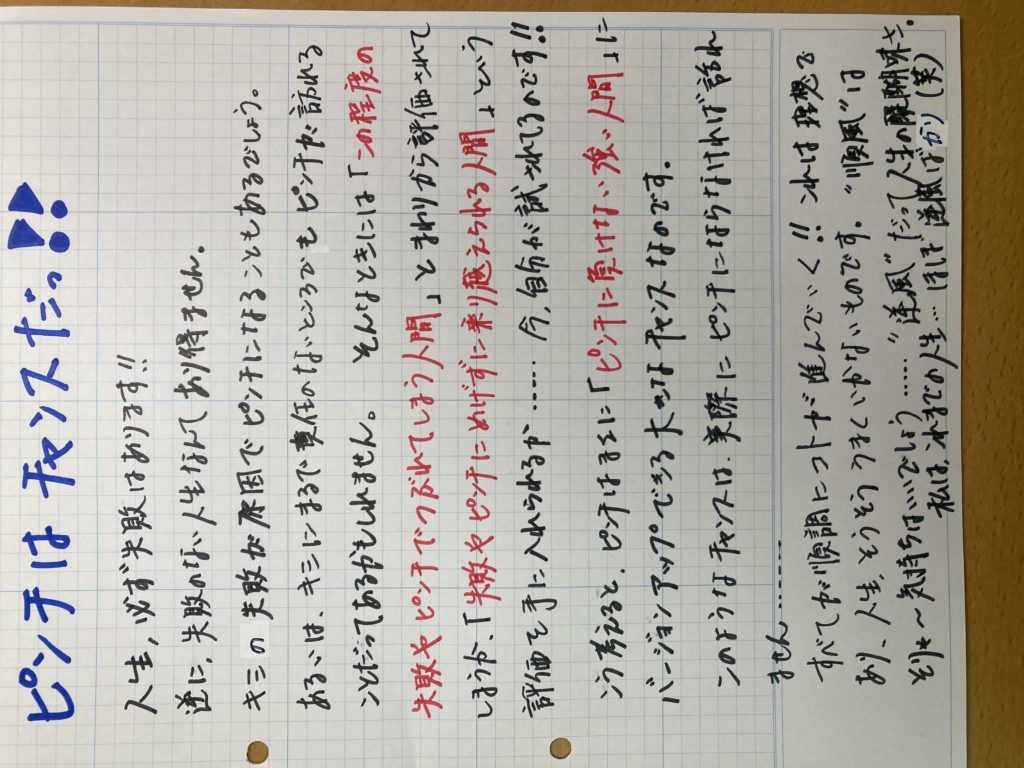 ピンチはチャンスだっ!!
人生、必ず失敗はあります!!
逆に、失敗のない人生なんてあり得ません。
キミの失敗が原因でピンチになることもあるでしょう。
あるいは、キミにまるで責任のないところでもピンチが訪れる
ことだってあるかもしれません。そんなときには「この程度の
失敗やピンチでつぶれてしまう人間」とまわりから評価されて
しまうか、「失敗やピンチにめげずに乗り越えられる人間」という
評価を手に入れられるか……今、自分が試されてるのです!!
こう考えると、ピンチはまさに「ピンチに負けない強い人間」に
バージョンアップできる大きなチャンスなのです。
このようなチャンスは、実際にピンチにならなければ訪れ
ません………
すべてが順調にコトが進んでいく!! これは理想で
あり、人生、そうそううまくいかないものです。"順風"は
そりゃ〜気持ちはいいでしょう……"逆風"だって人生の醍醐味さ。
私は、これまでの人生…ほぼ逆風ばかり(笑)